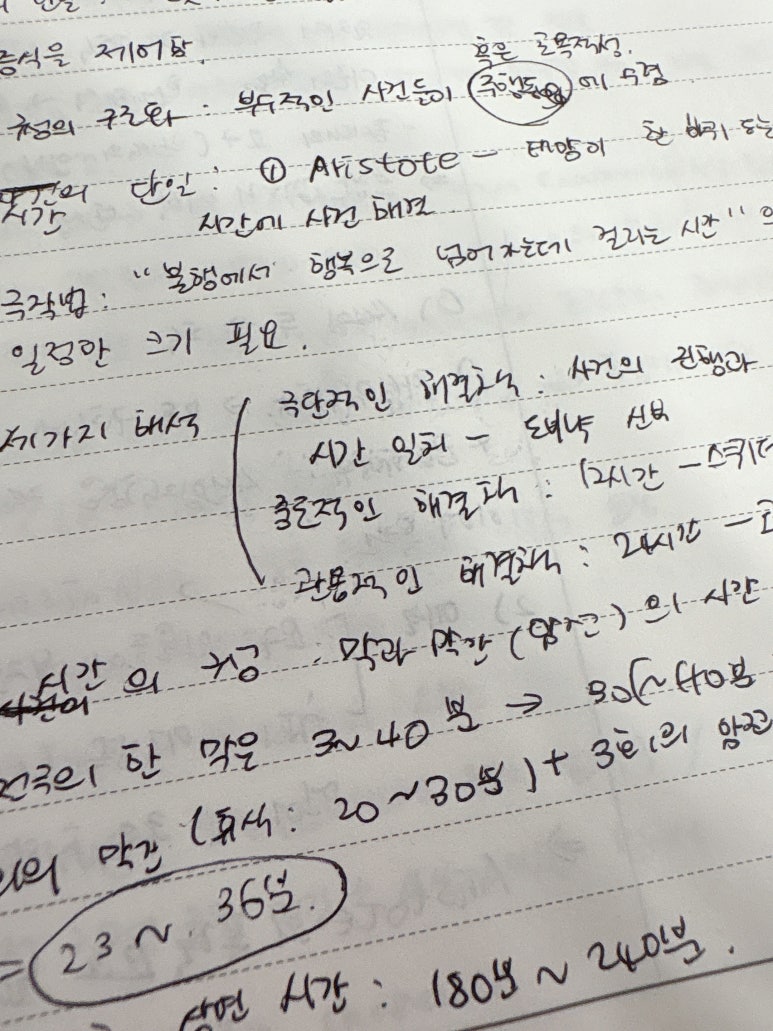 증식을 제어함.
혹은 교육적성.
규정의 구조화 : 부수적인 사건들이 에 수렴
시간의 단일 : ① Aristote — 태양이 한 바퀴 도는
시간에 사건 해결
극작법 : "불행에서 행복으로 넘어가는데 걸리는 시간"
일정한 크기 필요.
세가지 해석
극단적인 해결책 : 사건의 진행과
시간 일치 — 도비냑 신부
중론적인 해결책 : 12시간 —
관용적인 해결책 : 24시간 —
시간의 허공 : 막과 막간 (암전) 의 시간
한 막은 3~40분 → 30(~40분
막간 (휴식 : 20~30분) + 3회의 암전
= 23 ~ 36분.
상연 시간 : 180분 ~ 240분.